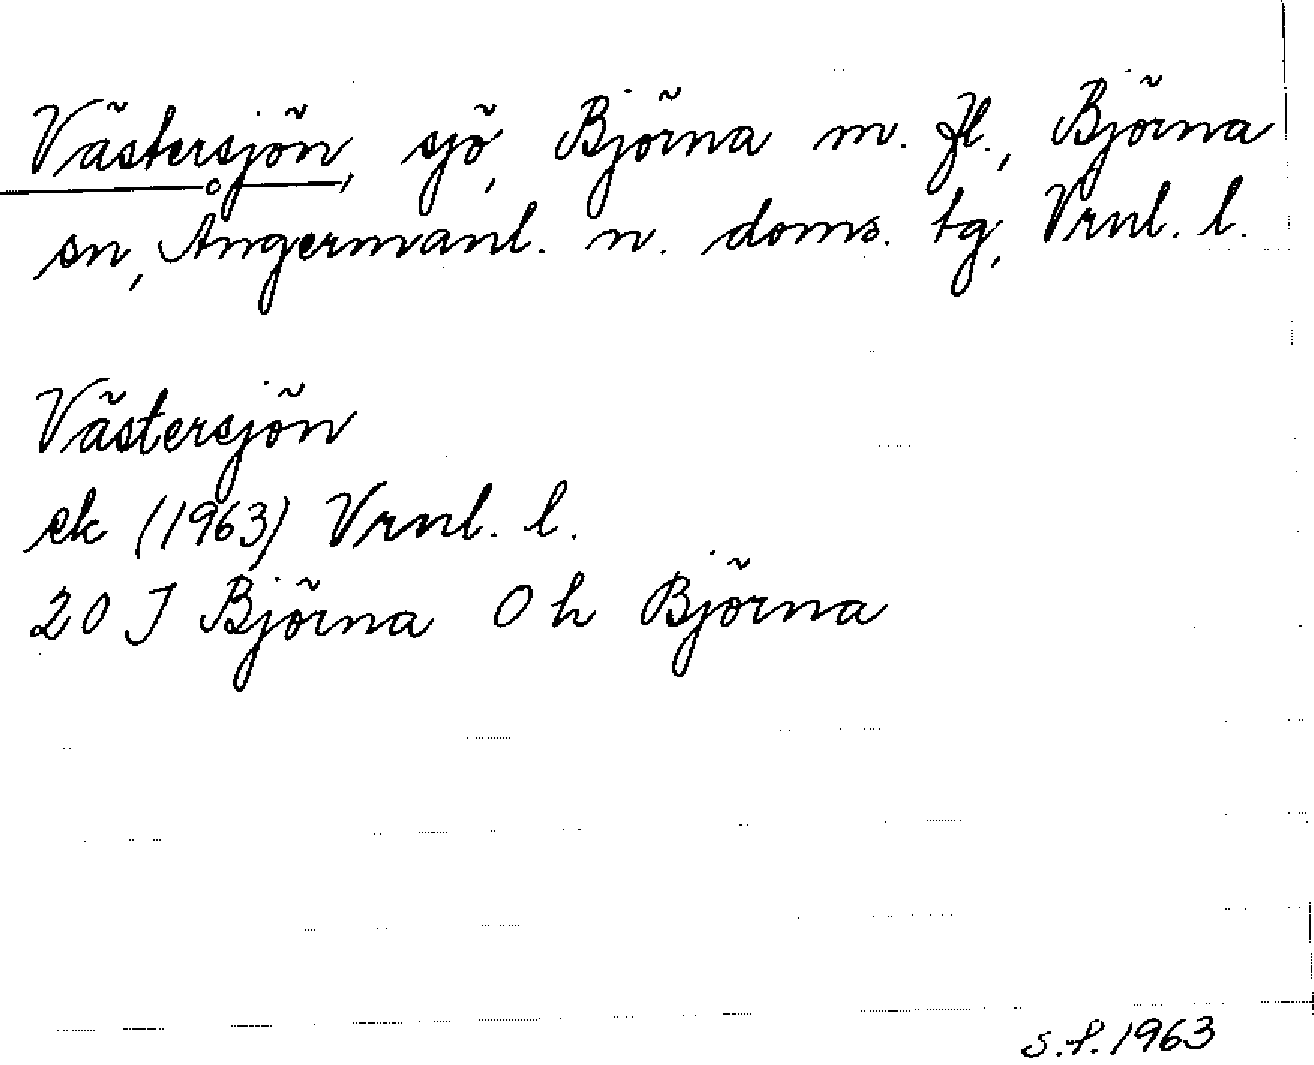 Västersjön, sjö, Björna m. fl., Björna
sn, Ångermanl. n. doms. tg, Vrnl. l.
Västersjön
ek (1963) Vrnl. l.
20 J Björna 0 h Björna
s.f. 1963